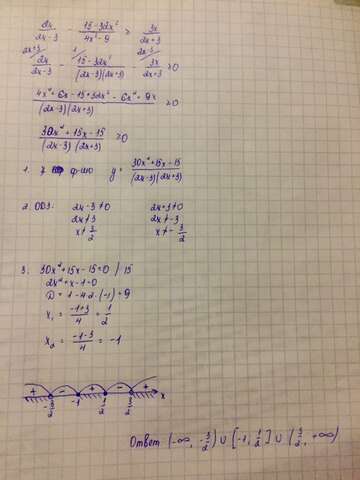 2x/(2x-3) - (15-32x²)/(4x²-9) ≥ 3x/(2x+3)
2x+3 1 2x-3
2x/(2x-3) - (15-32x²)/((2x-3)(2x+3)) - 3x/(2x+3) ≥0
(4x²+6x-15+32x²-6x²+9x)/((2x-3)(2x+3)) ≥0
(30x²+15x-15)/((2x-3)(2x+3)) ≥0
1. ф-цию y= (30x²+15x-15)/((2x-3)(2x+3))
2. ОДЗ: 2x-3≠0 2x+3≠0
2x≠3 2x≠-3
x≠3/2 x≠-3/2
3. 30x²+15x-15=0 / 15
2x²+x-1=0
D=1-4·2·(-1)=9
x₁ = (-1+3)/4 = 1/2
x₂ = (-1-3)/4 = -1
+ - + - +
-3/2 -1 1/2 3/2 x
Ответ (-∞, -3/2) ∪ [-1, 1/2] ∪ (3/2, +∞)